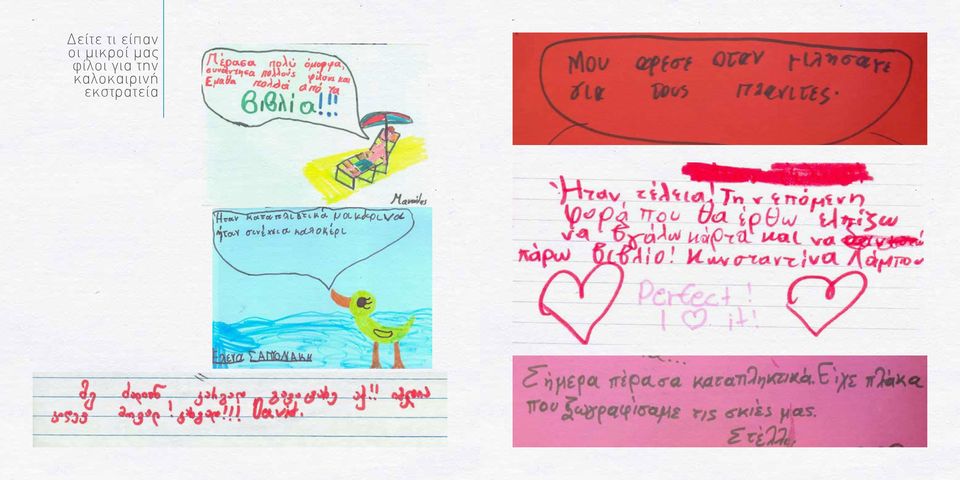 Δείτε τι είπαν
οι μικροί μας
φίλοι για την
καλοκαιρινή
εκστρατεία
Πέρασα πολύ όμορφα,
συνάντησα πολλούς φίλους και
Έμαθα πολλά από τα
βιβλία!!!
Μανώλης
Ήταν καταπλιστικά μακάρι να
ήταν συνέχεια καλοκέρι
Έλενα ΣΑΠΟΥΝΑΚΗ
Μου αρεσε οταν μιλησαμε
για τους πλανιτες.
Ήταν τέλεια! Την επόμενη
φορά που θα έρθω ελπίζω
να βγάλω κάρτα και να
πάρω βιβλίο! Κωνσταντίνα Λάμπου
Perfect!
I ♡ it!
Σήμερα πέρασα καταπληκτικά. Είχε πλάκα
που ζωγραφίσαμε τις σκιές μας.
Στέλλα